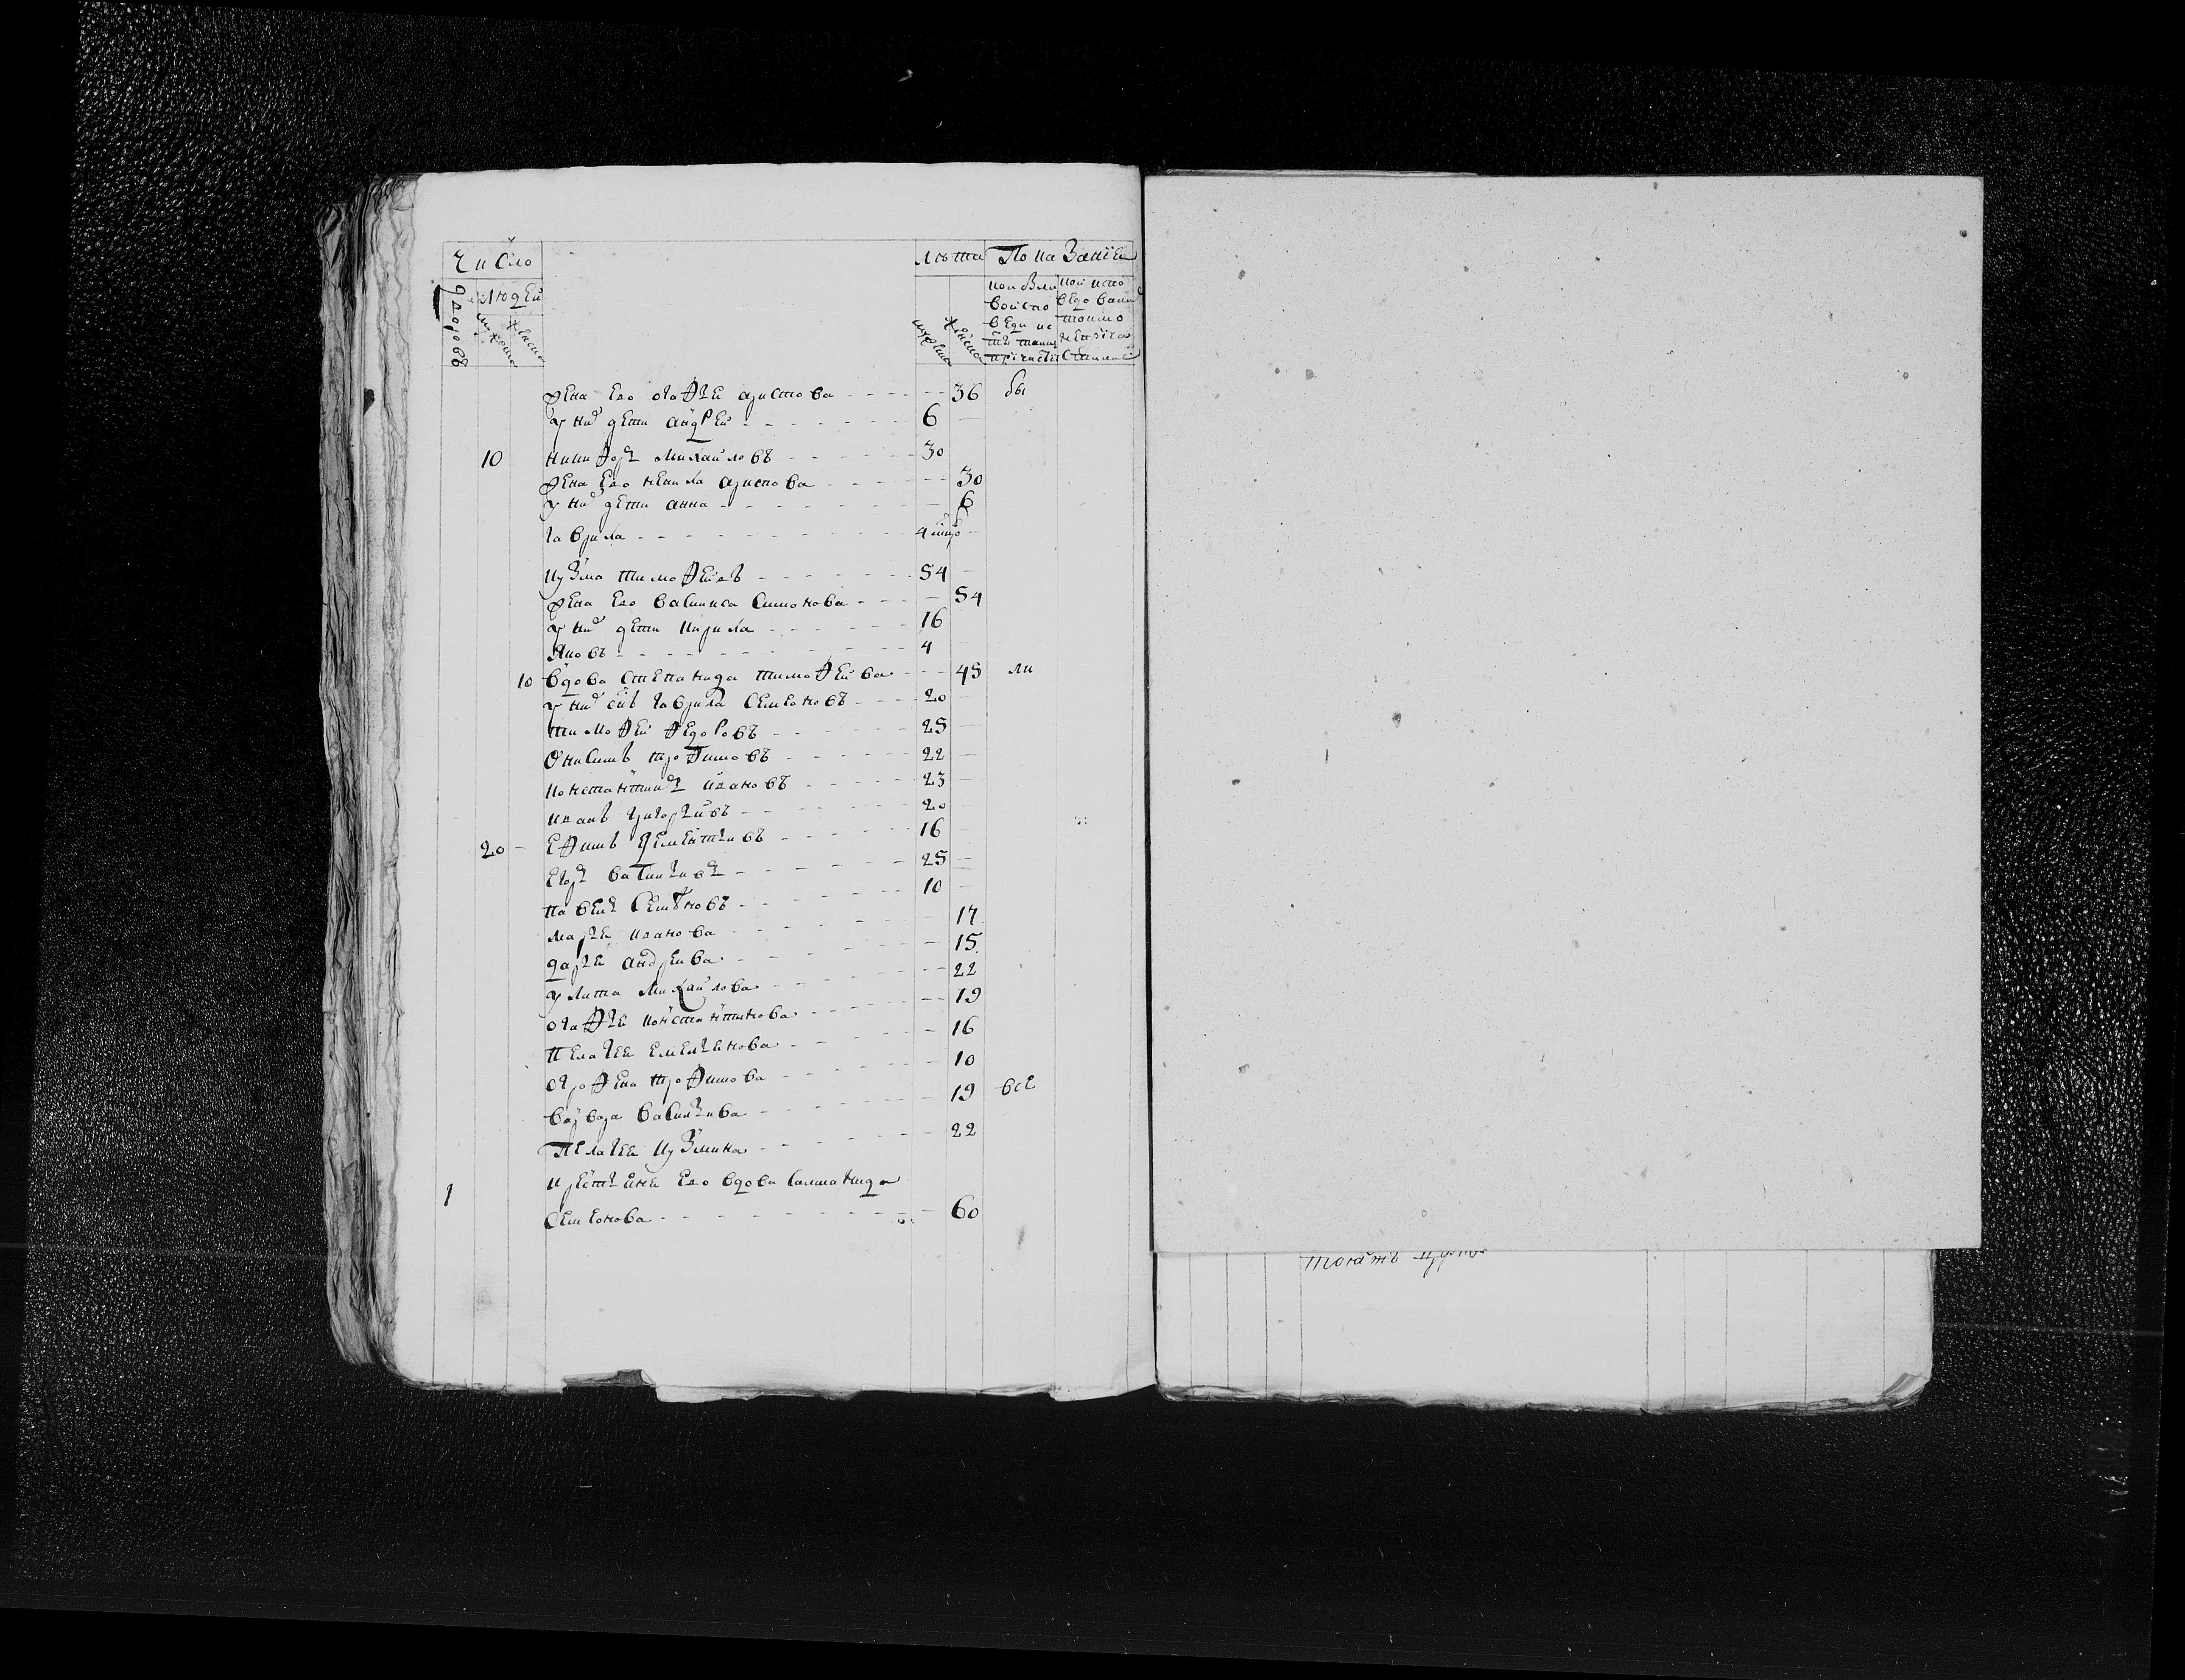 Число Люта Показание
дворовъ людей мужеска женска мужеска женска
кои были в ои спо веди и с тъ таин причасти
кои испо ведовали токмо
жена ево агафѣя аристова 36 бы
у них дети андрей 6
10 никифоръ михайловъ 30
жена ево ненила аристова 30
у них дети анна 6
гаврила 4
кузма тимофеивъ 54
жена ево василиса симонова 54
у них дети кирила 16
яковъ 4
10 вдова степанида тимофеива 45 ли
у ней снъ гаврила семеновъ 20
тимофей федоровъ 25
онисимъ трофимовъ 22
констянтинъ ивановъ 23
иванъ григорьивъ 20
20 ефимъ дементьивъ 16
егоръ васильивъ 25
павелъ семеновъ 10
марья иванова 17
дарья андреива 15
улита михайлова 22
агафья констянтинова 19
пелагея емельянова 16
офрофена трофимова 10
варвара васильива 19 все
пелагея кузмина 22
1 крестьянка ево вдова саламанида
семенова 60